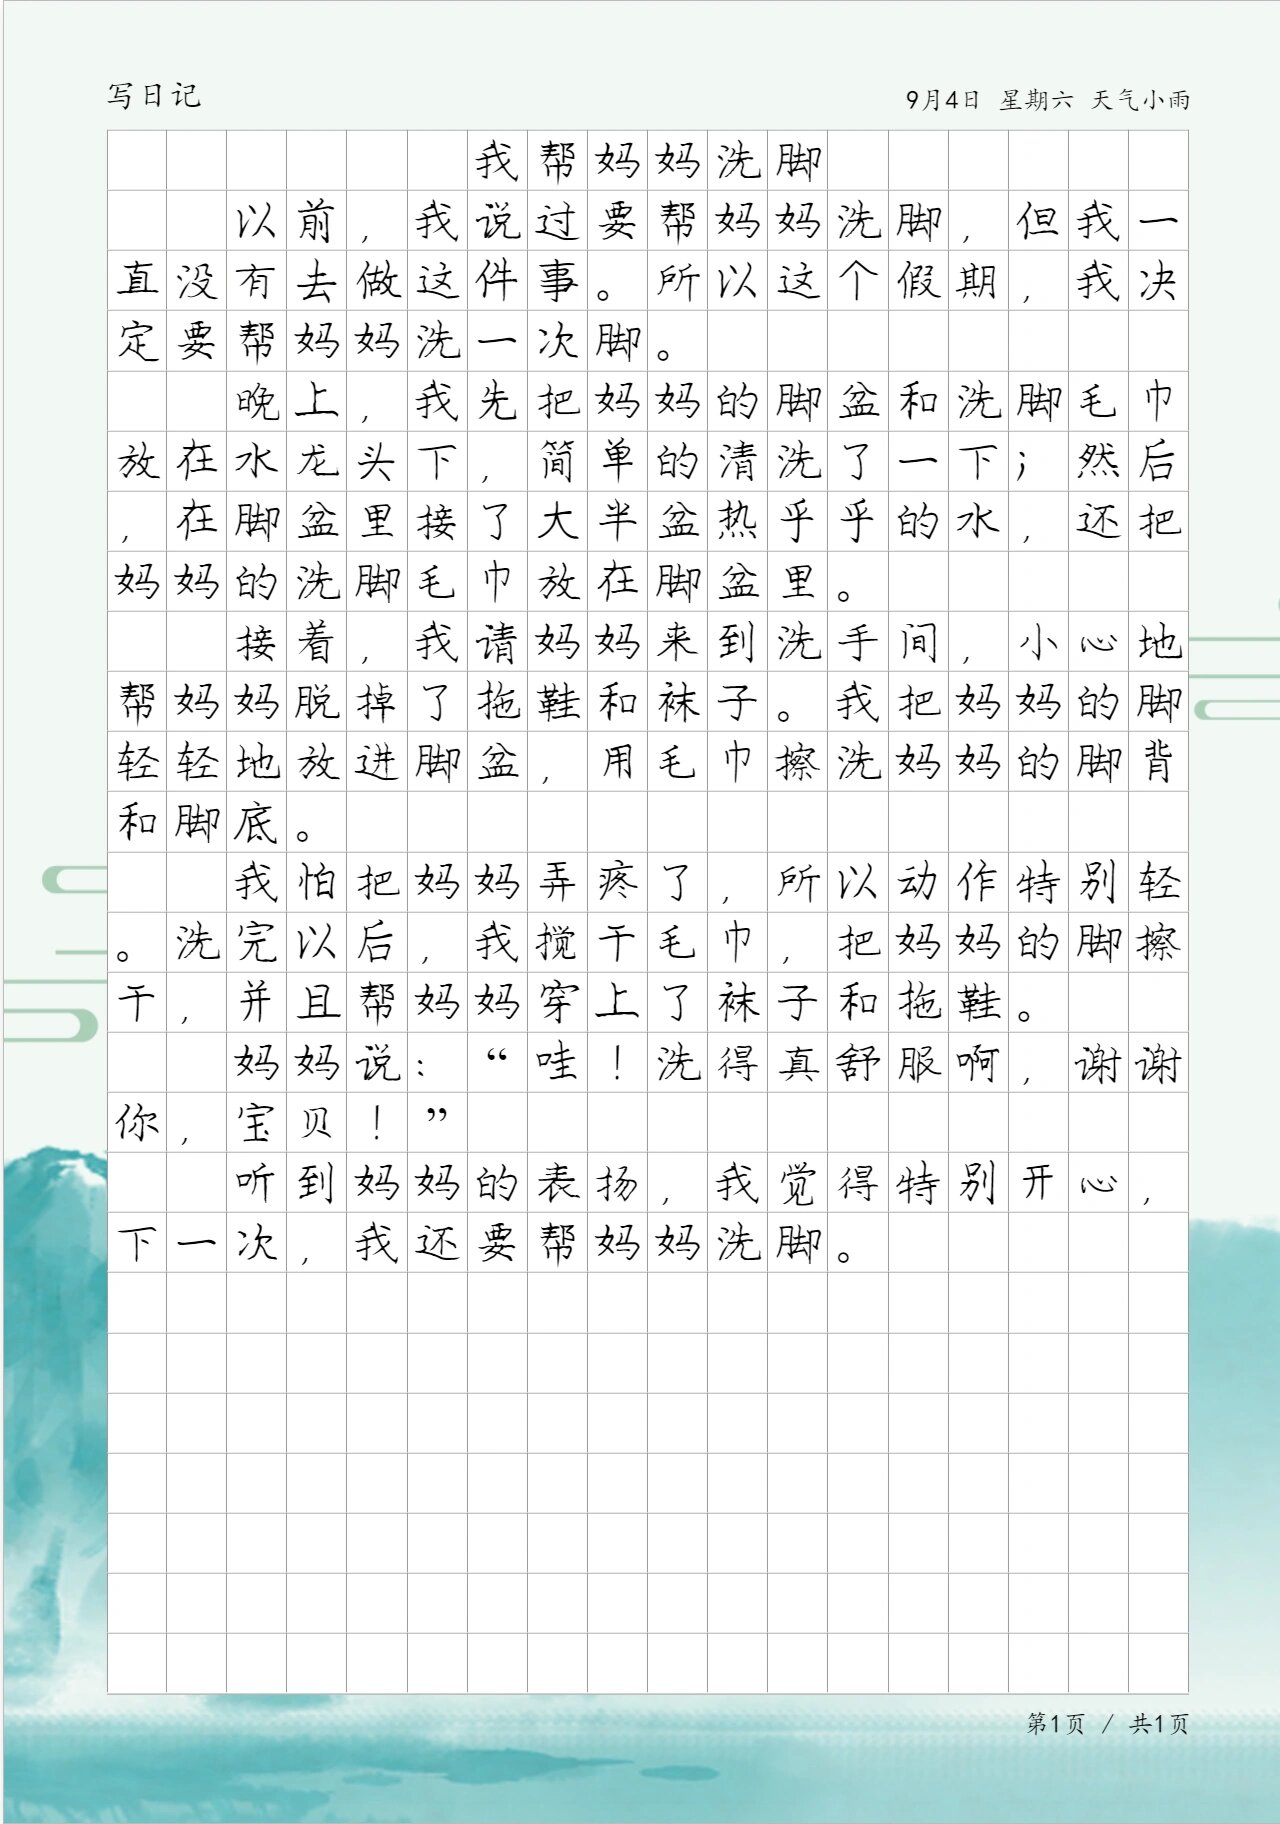 写日记
9月4日 星期六 天气小雨
我帮妈妈洗脚
以前，我说过要帮妈妈洗脚，但我一
直没有去做这件事。所以这个假期，我决
定要帮妈妈洗一次脚。
晚上，我先把妈妈的脚盆和洗脚毛巾
放在水龙头下，简单的清洗了一下；然后
，在脚盆里接了大半盆热乎乎的水，还把
妈妈的洗脚毛巾放在脚盆里。
接着，我请妈妈来到洗手间，小心地
帮妈妈脱掉了拖鞋和袜子。我把妈妈的脚
轻轻地放进脚盆，用毛巾擦洗妈妈的脚背
和脚底。
我怕把妈妈弄疼了，所以动作特别轻
。洗完以后，我搅干毛巾，把妈妈的脚擦
干，并且帮妈妈穿上了袜子和拖鞋。
妈妈说：“哇！洗得真舒服啊，谢谢
你，宝贝！”
听到妈妈的表扬，我觉得特别开心，
下一次，我还要帮妈妈洗脚。
第1页 / 共1页